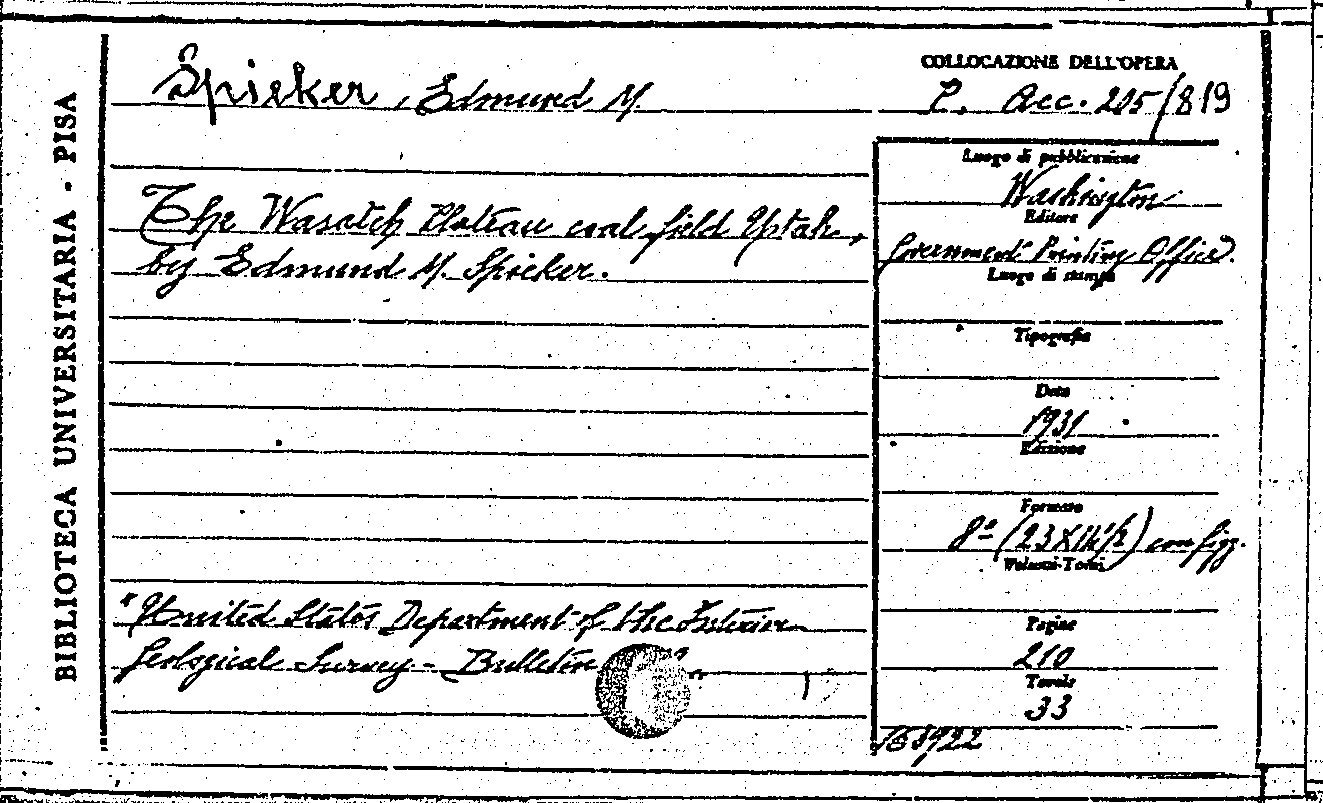 BIBLIOTECA UNIVERSITARIA - PISA
Spieker, Edmund M.
COLLOCAZIONE DELL'OPERA
P. Acc. 205/819
The Wasatch Plateau coal field Uptah,
by Edmund M. Spieker.
"United States Department of the Interior
Geological Survey - Bulletin
Luogo di pubblicazione
Washington
Editore
Government Printing Office
Luogo di stampa
Tipografia
Data
1931
Edizione
Formato
8° (23X14½) con figg.
Volumi-Tomi
Pagine
210
Tavole
33